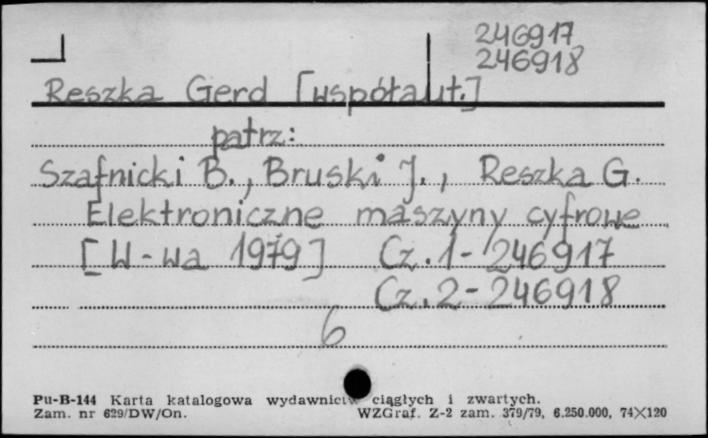 246917
246918
Reszka Gerd [współaut.]
patrz:
Szafnicki B., Bruski J., Reszka G.
Elektroniczne maszyny cyfrowe
[W-wa 1979] Cz. 1 - 246917
Cz. 2 - 246918
6
Pu-B-144 Karta katalogowa wydawnictw ciągłych i zwartych.
Zam. nr 629/DW/On. WZGraf. Z-2 zam. 379/79, 6.250.000, 74×120